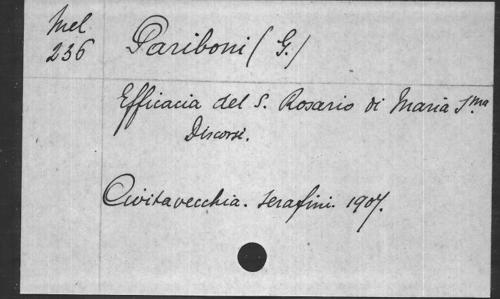 Mel. 236
Pariboni (G.)
Efficacia del S. Rosario di Maria Sma
Discorsi.
Civitavecchia. Serafini. 1907.